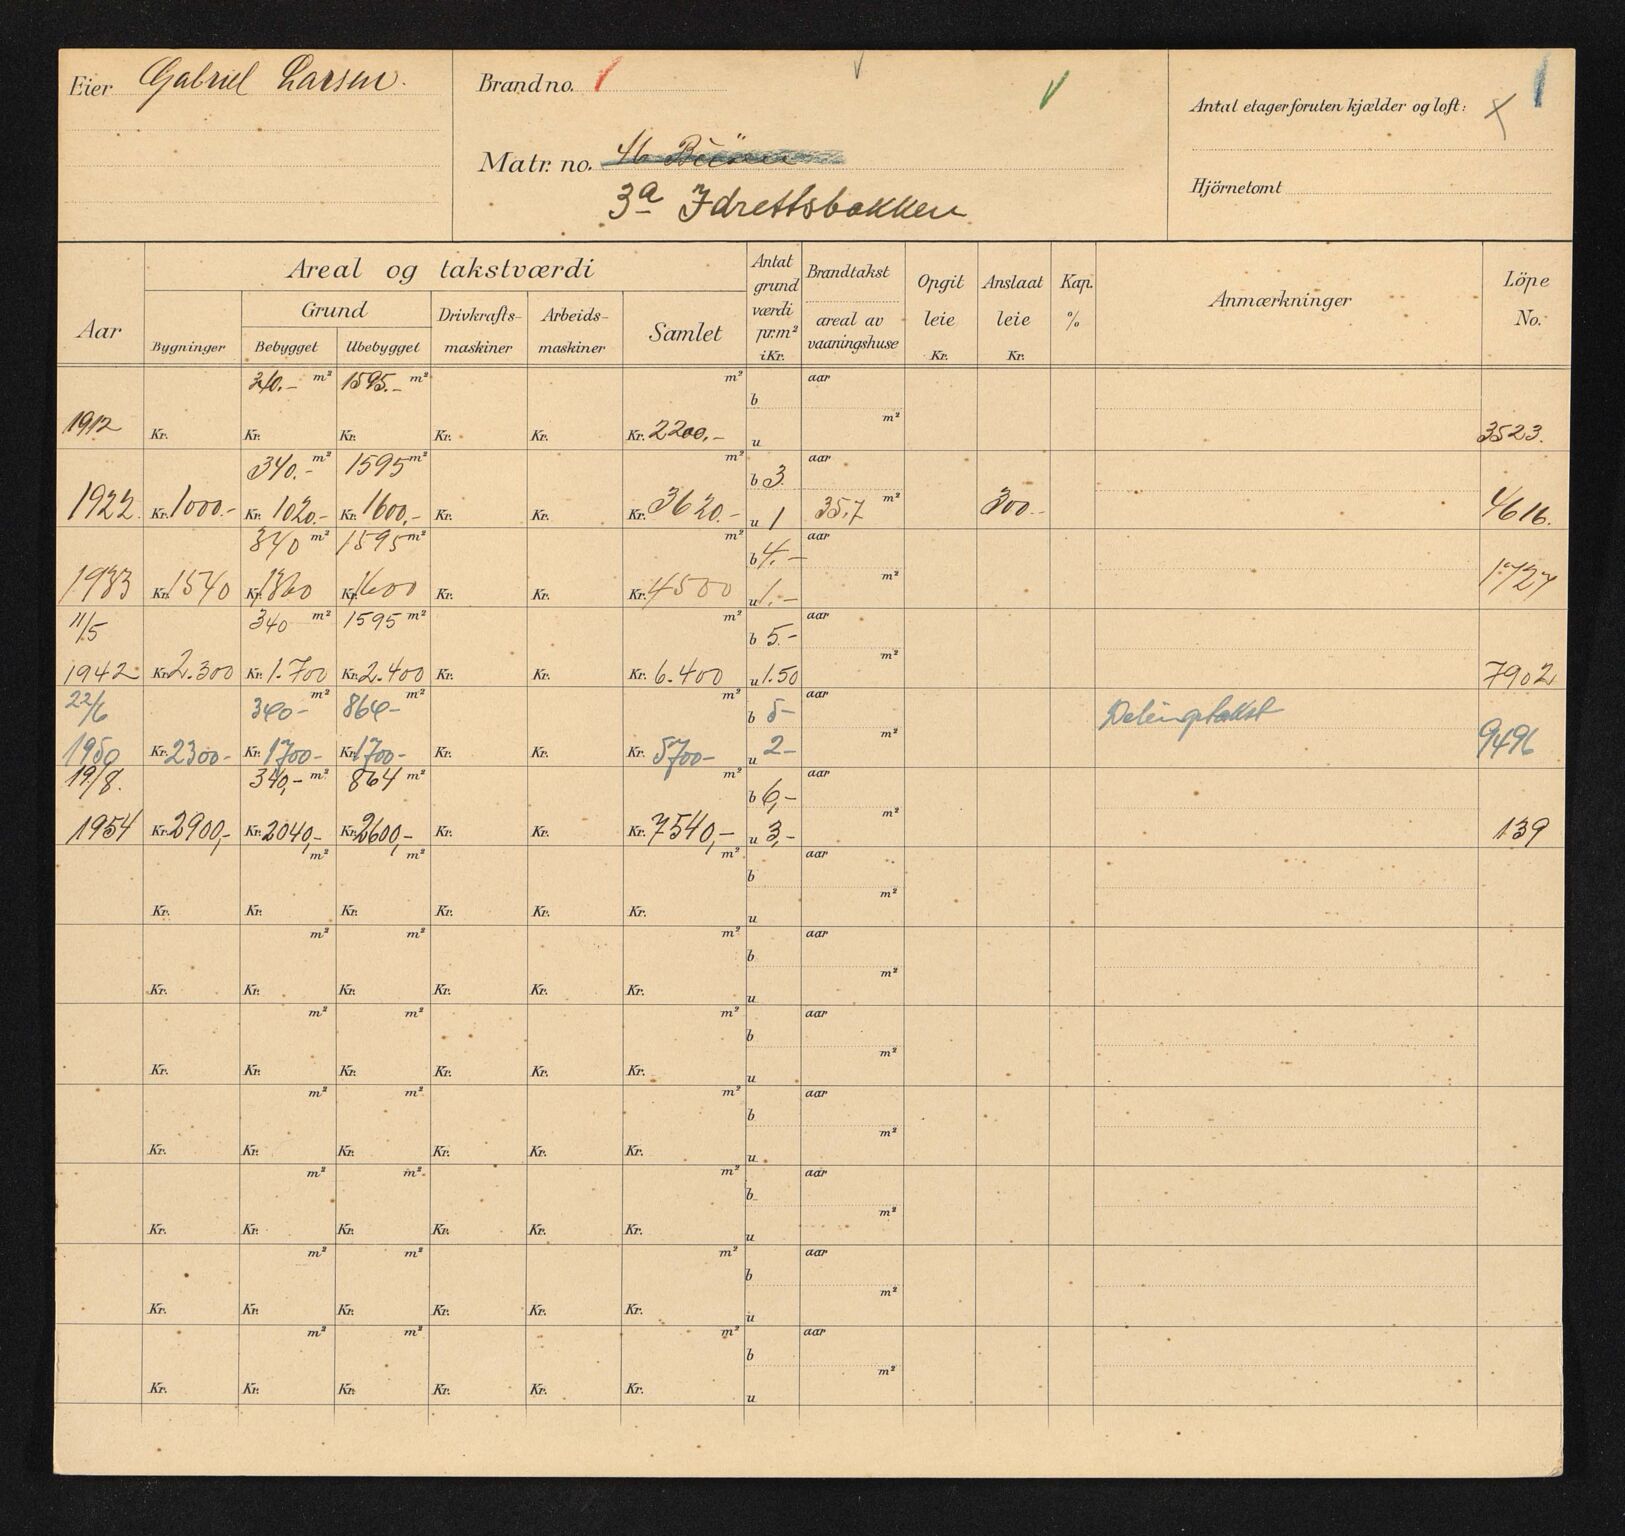 Eier Gabriel Larsen.
Brand no.
Matr. no.
3a Idrettsbakken
Antal etager foruten kjælder og loft: x
Hjörnetomt
Aar
Areal og takstværdi
Bygninger
Grund
Bebygget
Ubebygget
Drivkrafts-
maskiner
Arbeids-
maskiner
Samlet
Antat
grund
værdi
pr. m²
i Kr.
Brandtakst
areal av
vaaningshuse
Opgit
leie
Kr.
Anslaat
leie
Kr.
Kap.
%
Anmærkninger
Löpe
No.
340.- m² 1595.- m² m² b aar
1912 Kr. Kr. Kr. Kr. Kr. Kr. 2200.- u m² 3523.
340.- m² 1595 m² m² b 3. aar
1922 Kr. 1000.- Kr. 1020.- Kr. 1600,- Kr. Kr. Kr. 3620.- u 1 35,7 m² 300.- 4616.
340 m² 1595 m² m² b 4.- aar
1933 Kr. 1540 Kr. 1360 Kr. 1600 Kr. Kr. Kr. 4500 u 1.- m² 1727
11/5 340 m² 1595 m² m² b 5.- aar
1942 Kr. 2.300 Kr. 1.700 Kr. 2.400 Kr. Kr. Kr. 6.400 u 1.50 m² 7902
22/6 340- m² 864- m² m² b 5- aar Delingstakst
1950 Kr. 2300- Kr. 1700- Kr. 1700- Kr. Kr. Kr. 5700- u 2- m² 9496
19/8. 340,- m² 864 m² m² b 6,- aar
1954 Kr. 2900,- Kr. 2040,- Kr. 2600,- Kr. Kr. Kr. 7540,- u 3,- m² 139
m² m² m² b aar
Kr. Kr. Kr. Kr. Kr. Kr. u m²
m² m² m² b aar
Kr. Kr. Kr. Kr. Kr. Kr. u m²
m² m² m² b aar
Kr. Kr. Kr. Kr. Kr. Kr. u m²
m² m² m² b aar
Kr. Kr. Kr. Kr. Kr. Kr. u m²
m² m² m² b aar
Kr. Kr. Kr. Kr. Kr. Kr. u m²
m² m² m² b aar
Kr. Kr. Kr. Kr. Kr. Kr. u m²
m² m² m² b aar
Kr. Kr. Kr. Kr. Kr. Kr. u m²